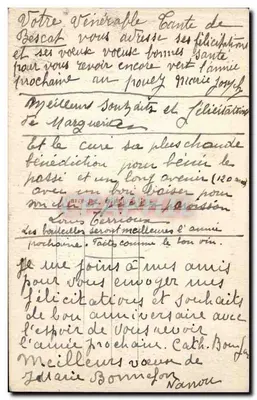 Votre Vénérable Tante de
Bescat vous adresse ses félicitations
et ses vœux bonnes santé
pour vous revoir encore vert l'année
prochaine au pouey Marie Joseph
Meilleurs Souhaits et félicitations
de Marguerite
Et le curé sa plus chaude
bénédiction pour bénir le
passé et un long avenir (120 ans)
avec un bon baiser pour
son
Louis
Les bouteilles seront meilleures l'année
prochaine. Faites comme le bon vin.
Je me joins à mes amis
pour vous envoyer mes
félicitations et souhaits
de bon anniversaire avec
l'espoir de vous revoir
l'année prochain. Cath.
Meilleurs vœux de
Marie Bonnefon
Nanou